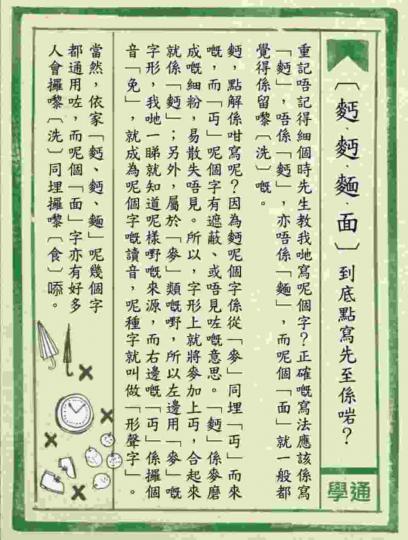 〔麪、麫、麵、面〕到底點寫先至係啱？
重記唔記得細個時先生教我哋寫呢個字？正確嘅寫法應該係寫
「麪」，唔係「麫」，亦唔係「麵」，而呢個「面」就一般都
覺得係留嚟〔洗〕嘅。
麪，點解係咁寫呢？因為麪呢個字係從「麥」同埋「丏」而來
嘅，而「丏」呢個字有遮蔽、或唔見咗嘅意思。「麪」係麥磨
成嘅細粉，易散失唔見。所以，字形上就將麥加上丏，合起來
就係「麪」；另外，屬於「麥」類嘅嘢，所以左邊用「麥」嘅
字形，我哋一睇就知道呢樣嘢嘅來源，而右邊嘅「丏」係攞個
音「免」，就成為呢個字嘅讀音，呢種字就叫做「形聲字」。
當然，依家「麪、麫、麵」呢幾個字
都通用咗，而呢個「面」字亦有好多
人會攞嚟〔洗〕同埋攞嚟〔食〕㗎。
通學